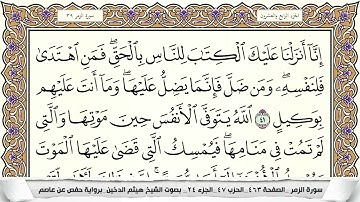 الجزء الرابع والعشرون
سورة الزمر ٣٩
إِنَّآ أَنزَلْنَا عَلَيْكَ ٱلْكِتَٰبَ لِلنَّاسِ بِٱلْحَقِّ ۖ فَمَنِ ٱهْتَدَىٰ
فَلِنَفْسِهِۦ ۖ وَمَن ضَلَّ فَإِنَّمَا يَضِلُّ عَلَيْهَا ۖ وَمَآ أَنتَ عَلَيْهِم
بِوَكِيلٍ ٤١ ٱللَّهُ يَتَوَفَّى ٱلْأَنفُسَ حِينَ مَوْتِهَا وَٱلَّتِى
لَمْ تَمُتْ فِى مَنَامِهَا ۖ فَيُمْسِكُ ٱلَّتِى قَضَىٰ عَلَيْهَا ٱلْمَوْتَ
سورة الزمر _ الصفحة ٤٦٣_ الحزب ٤٧ _ الجزء ٢٤ _ بصوت الشيخ هيثم الدخين _ برواية حفص عن عاصم